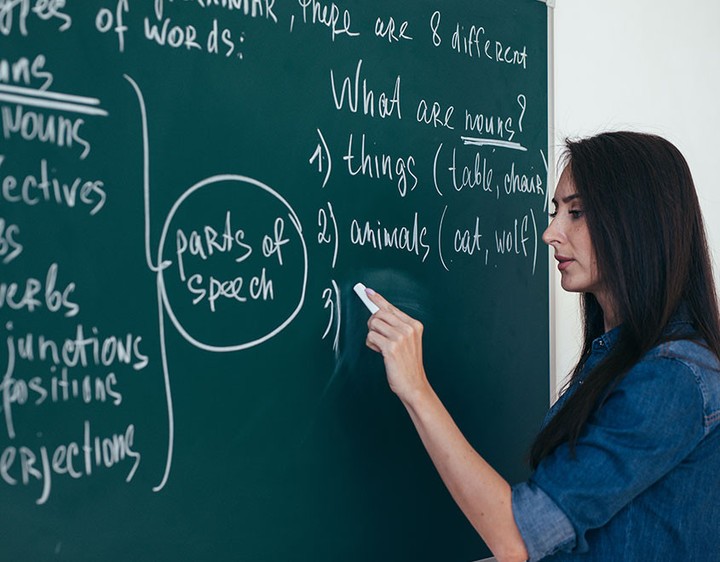 , There are 8 different
pes of words:
uns
nouns
ectives
bs
verbs
junctions
positions
erjections
parts of
speech
What are nouns?
1) things (table, chair)
2) animals (cat, wolf)
3)